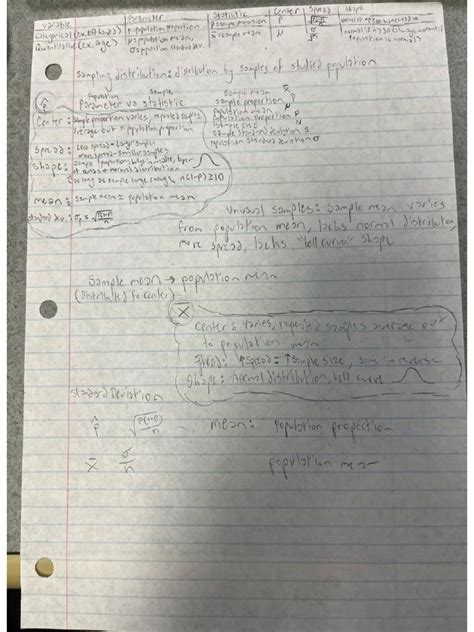 Variable | Parameter | Statistic | Center | Spread | Shape
Categorical (ex. eff. band) | p=population proportion | p̂=sample proportion | P
Quantitative (ex. age) | μ=population mean, | x̄=sample mean | μ
σ=population standard dev.
Sampling distribution: distribution by samples of studied population
Population Sample
Parameter vs statistic
Sample mean x̄
sample proportion p̂
Population mean μ
Population proportion P
Sample size
sample standard deviation s
population standard deviation σ
p̂
Center: Sample proportion varies, repeated samples
average out to population proportion
Spread: Less spread = larger samples
more spread = smaller samples
Shape:
normal distribution
(as long as sample large enough, n(1-p)≥10
mean: sample mean = population mean
Standard dev.:
Unusual samples: Sample mean varies
from population mean, lacks normal distribution,
more spread, lacks "bell curve" shape
Sample mean → population mean
(Distributed to center)
x̄
Center: varies, repeated samples average out
to population mean
Spread: ↑Spread = ↑Sample size, same in reverse
Shape: normal distribution, bell curve
Standard Deviation
p̂ √P(1-P)/n mean: population proportion
x̄ σ/n population mean